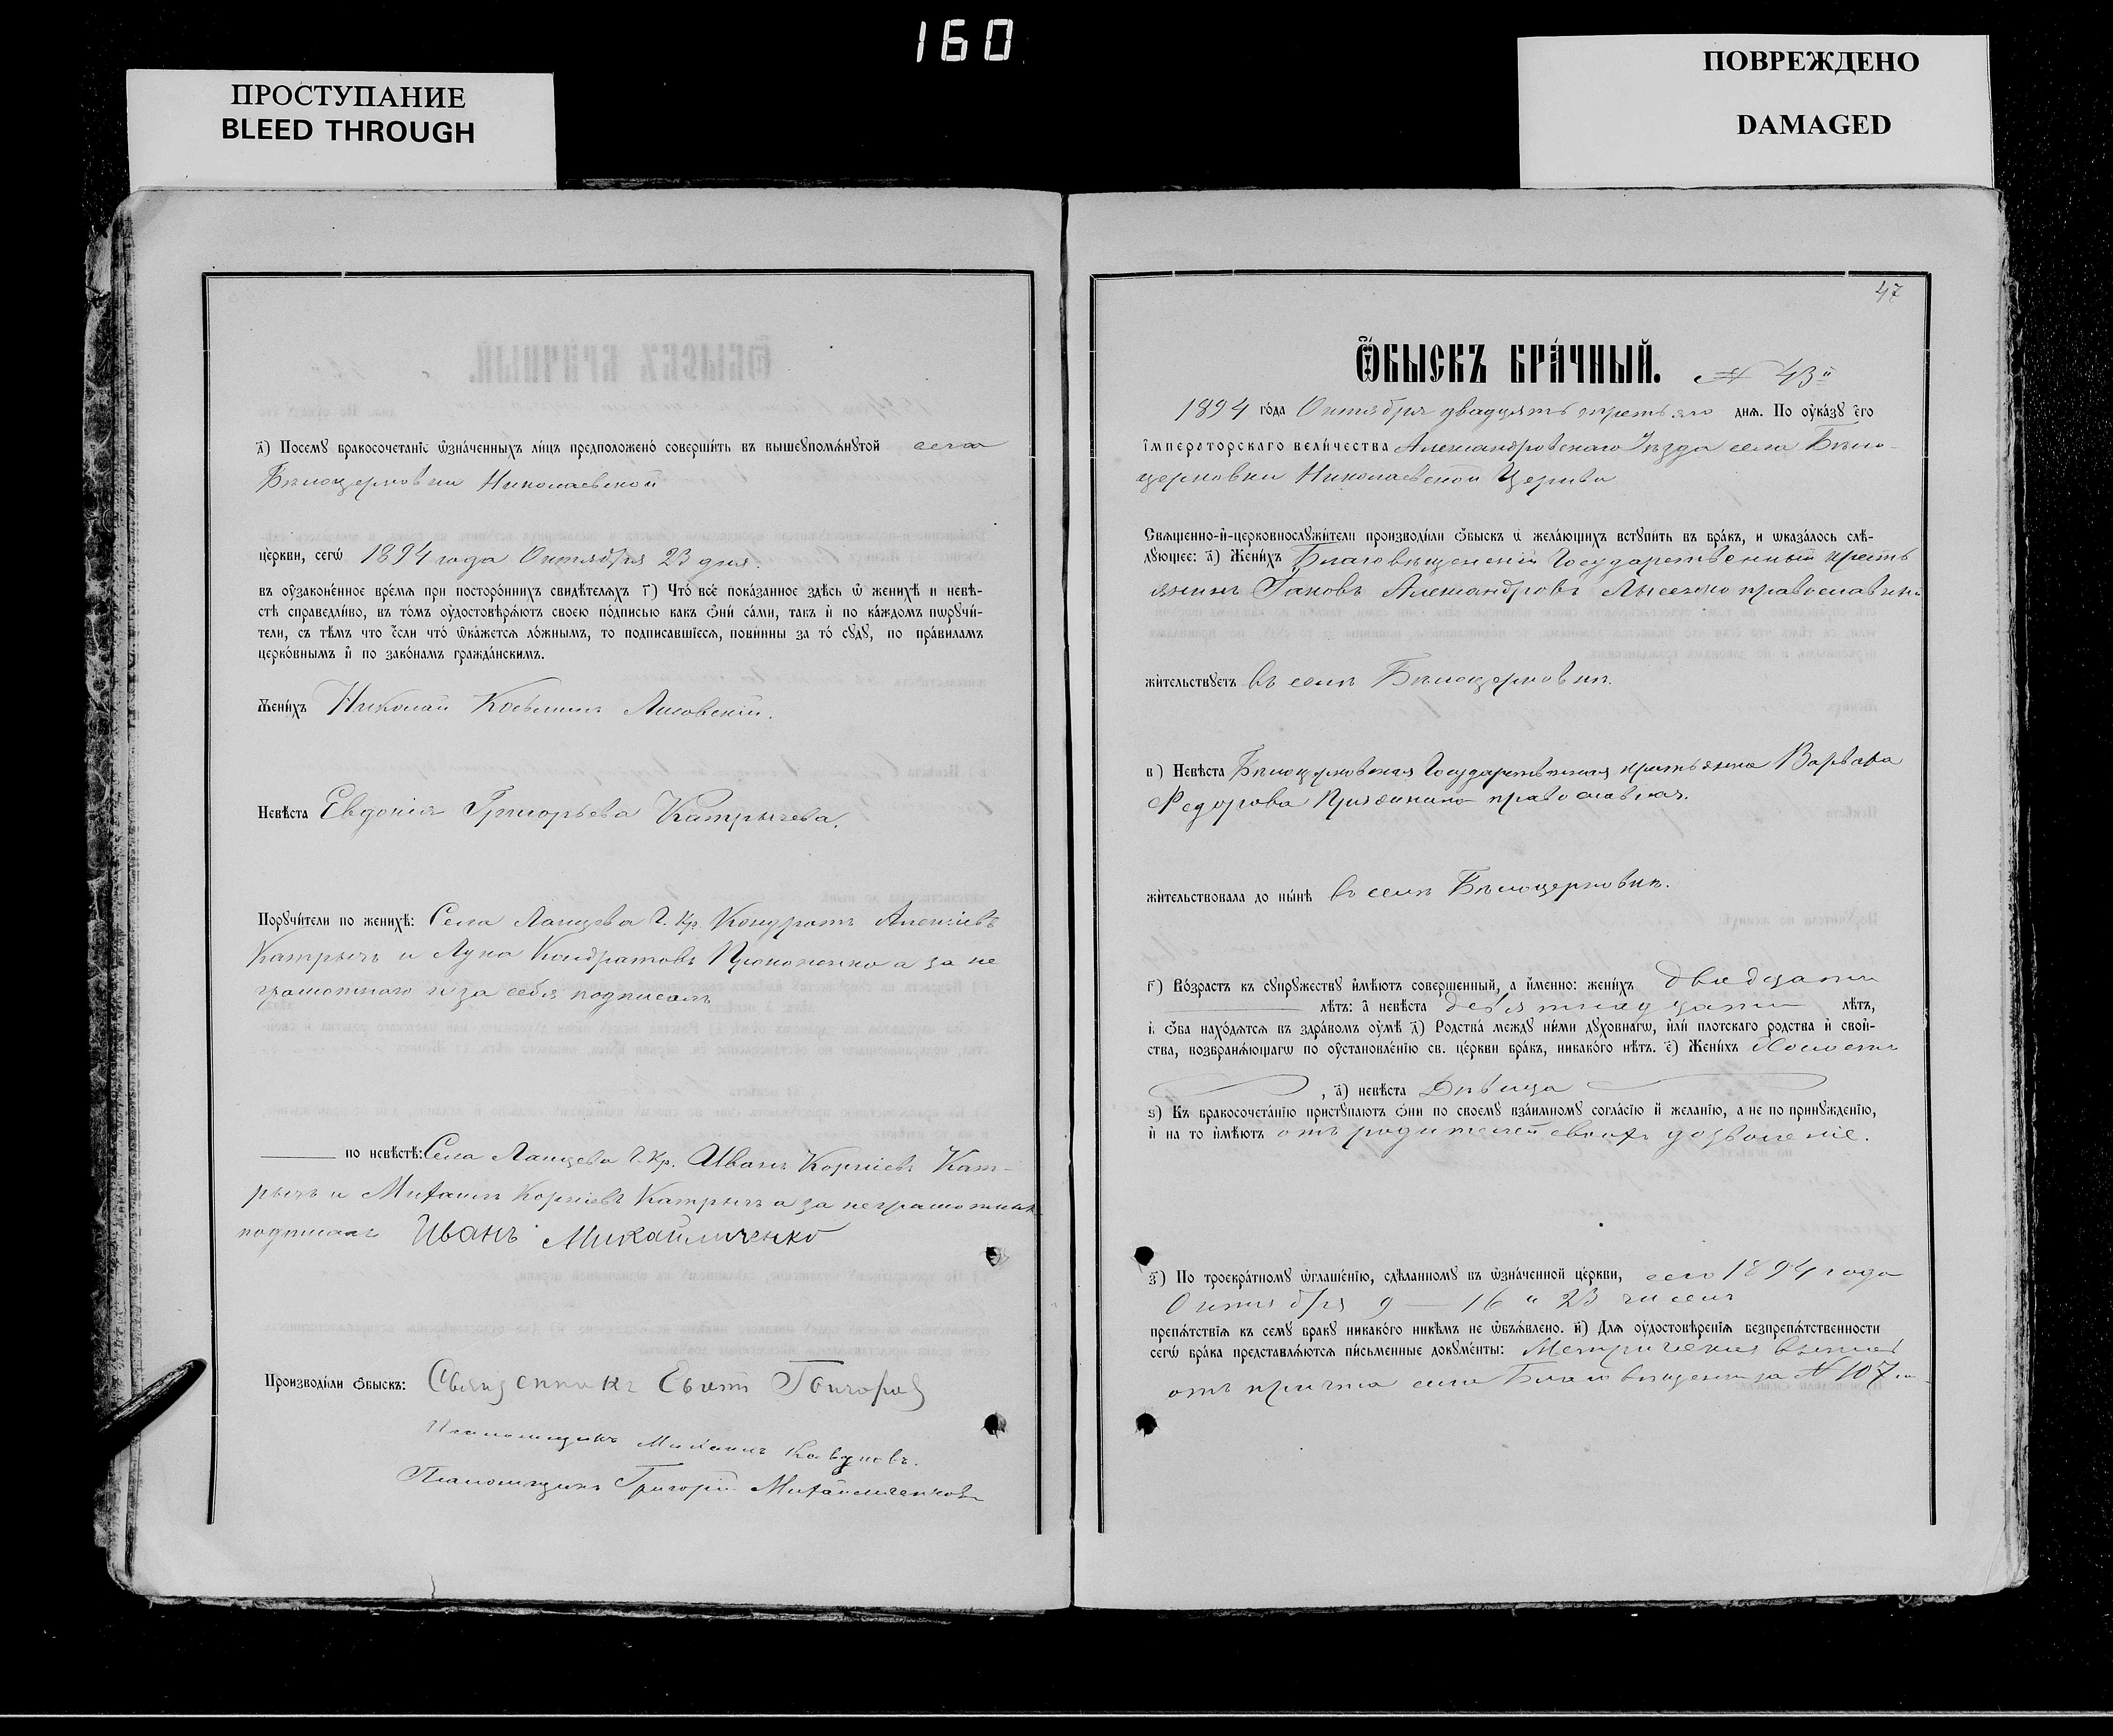 160
ПРОСТУПАНИЕ
BLEED THROUGH
ПОВРЕЖДЕНО
DAMAGED
д҃) Посемꙋ бракосочетаніє ѡзна́ченныхъ ли́цъ предположено́ соверши́ть въ вышеꙋпомѧ́нꙋтой села
Бѣлоцерковки Николаевской
це́ркви, сегѡ̀ 1894 года Октября 23 дня.
въ оу҆зако́ненное вре́мѧ при посторо́ннихъ свидѣ́телѧхъ г҃) Что́ всѐ пока́занное здѣсь ѡ҆ женихѣ̀ и невѣ-
стѣ справедли́во, въ то́мъ оу҆достовѣрѧ́ютъ своею по́дписью какъ ѻ҆нѝ са́ми, та́къ и҆ по ка́ждомъ пѡрꙋчи́-
тели, съ тѣ́мъ что є҆сли что́ ѡ҆ка́жетсѧ ло́жнымъ, то подписавшїесѧ, пови́нны за то́ сꙋдꙋ̀, по пра́виламъ
церко́внымъ и҆ по зако́намъ гражда́нскимъ.
Жени́хъ Николай Косьминъ Лисовскій.
Невѣ́ста Евдокія Григорьева Катрычева.
Порꙋчи́тели по женихѣ̀: Села Ланцева Г. Кр. Кондратъ Алексіевъ
Катрычъ и Лука Кондратовъ Прокопенко а за не
грамотнаго и за себя подписалъ
по невѣ́стѣ: Села Ланцева Г. Кр. Иванъ Корніевъ Кат-
рычъ и Михаилъ Корніевъ Катрычъ а за неграмотныхъ
подписалъ Иванъ Михайличенко
Производи́ли ѻ҆быскъ: Священникъ
Псаломщикъ Михаилъ
Псаломщикъ Григорій Михайличенковъ
47
Ѻ҆БЫСКЪ БРА́ЧНЫЙ. № 43й
1894 го́да Октября двадцать третьяго днѧ. По оу҆ка́зꙋ є҆го̀
і҆мператорскаго вели́чества Александровскаго Уѣзда села Бѣло-
церковки Николаевской Церкви
Свѧщенно-и҆-церковнослꙋжи́тели производи́ли ѻ҆быскъ ѡ҆ жела́ющихъ встꙋпи́ть въ бра́къ, и ѡказа́лось слѣ-
дꙋющее: а҃) Жени́хъ Благовѣщенскій Государственный крестъ
янинъ Іаковъ Александровъ Лысенко православный
жи́тельствꙋетъ въ селѣ Бѣлоцерковкѣ.
в҃) Невѣ́ста Бѣлоцерковская Государственная крестьянка Варвара
Федорова православная.
жи́тельствовала до ны́нѣ въ селѣ Бѣлоцерковкѣ.
г҃) Во́зрастъ къ сꙋпрꙋжествꙋ и҆мѣ́ютъ соверше́нный, а и҆́менно: жени́хъ двадцати
лѣтъ: а҆ невѣ́ста девятнадцати лѣ́тъ,
и҆ ѻ҆ба нахо́дѧтсѧ въ здра́вомъ оу҆мѣ̀ д҃) Родства̀ междꙋ̀ ни́ми дꙋхо́внагѡ, и҆лѝ плотскаго родства и҆ свой-
ства, возбранѧ́ющагѡ по оу҆становле́нїю св. це́ркви бра́къ, никако́го нѣ́тъ. є҃) Жени́хъ Холостъ
, а҆) невѣ́ста Дѣвица
ѕ҃) Къ бракосочета́нїю пристꙋпа́ютъ ѻ҆нѝ по своемꙋ вза́имномꙋ согла́сїю и҆ жела́нїю, а не по принꙋжде́нїю,
и҆ на то и҆мѣ́ютъ отъ родителей своихъ дозволеніе.
з҃) По троекра́тномꙋ ѡ҆глаше́нїю, сдѣ́ланномꙋ въ ѡ҆зна́ченной це́ркви, сего 1894 года
Октября 9 — 16 и 23 чиселъ
препѧ́тствїѧ къ семꙋ̀ бра́кꙋ никако́го никѣ́мъ не ѡ҆бъѧ́влено. и҃) Длѧ оу҆достовѣре́нїѧ безпрепѧ́тственности
сегѡ̀ бра́ка представлѧ́ютсѧ пи́сьменные докꙋме́нты: Метрическая выпись
отъ причта села Благовѣщенки за № 107м